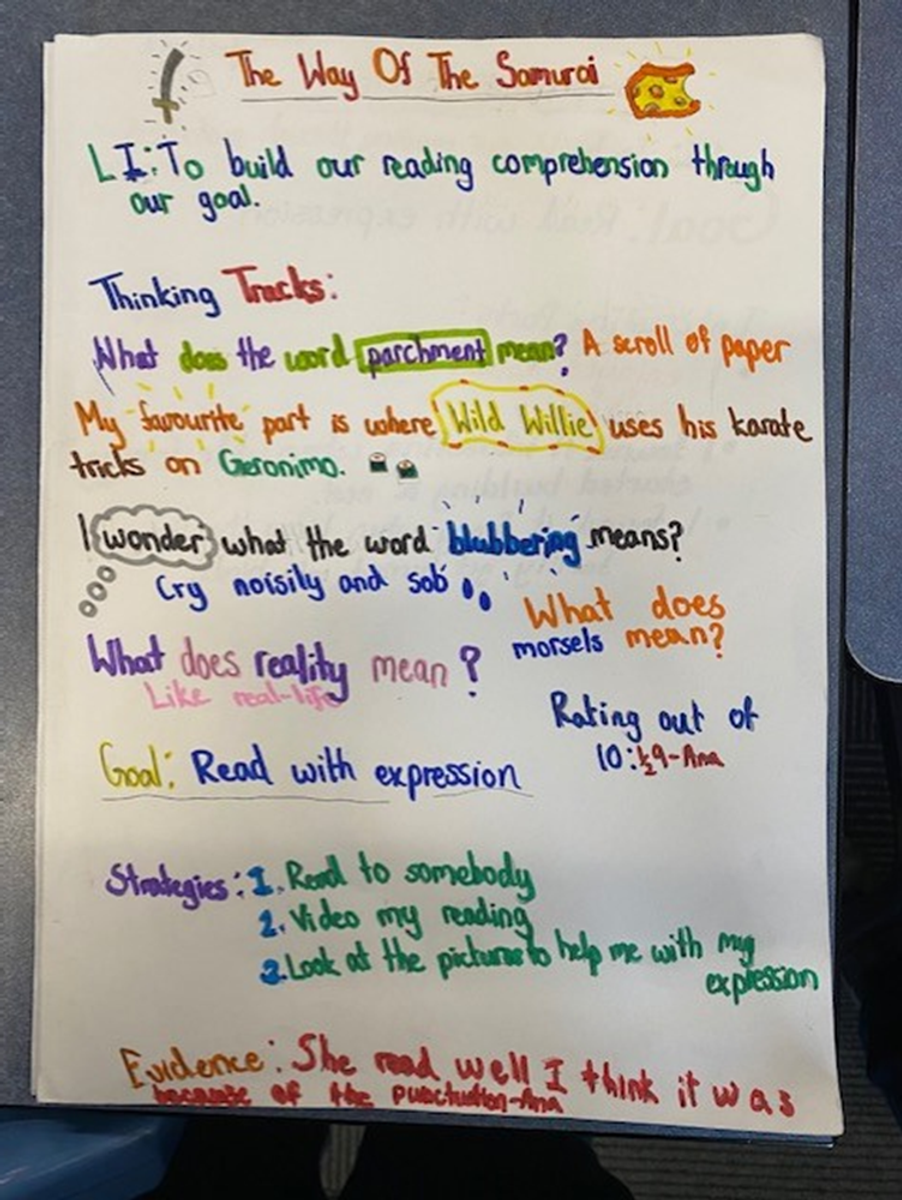 The Way Of The Samurai
LI: To build our reading comprehension through
our goal.
Thinking Tracks:
What does the word parchment mean? A scroll of paper
My favourite part is where Wild Willie uses his karate
tricks on Geronimo.
I wonder what the word blubbering means?
Cry noisily and sob
What does
morsels mean?
What does reality mean?
Like real-life
Rating out of
10: ½9-Ana
Goal: Read with expression
Strategies: 1. Read to somebody
2. Video my reading
3. Look at the pictures to help me with my
expression
Evidence: She read well I think it was
because of the punctuation-Ana